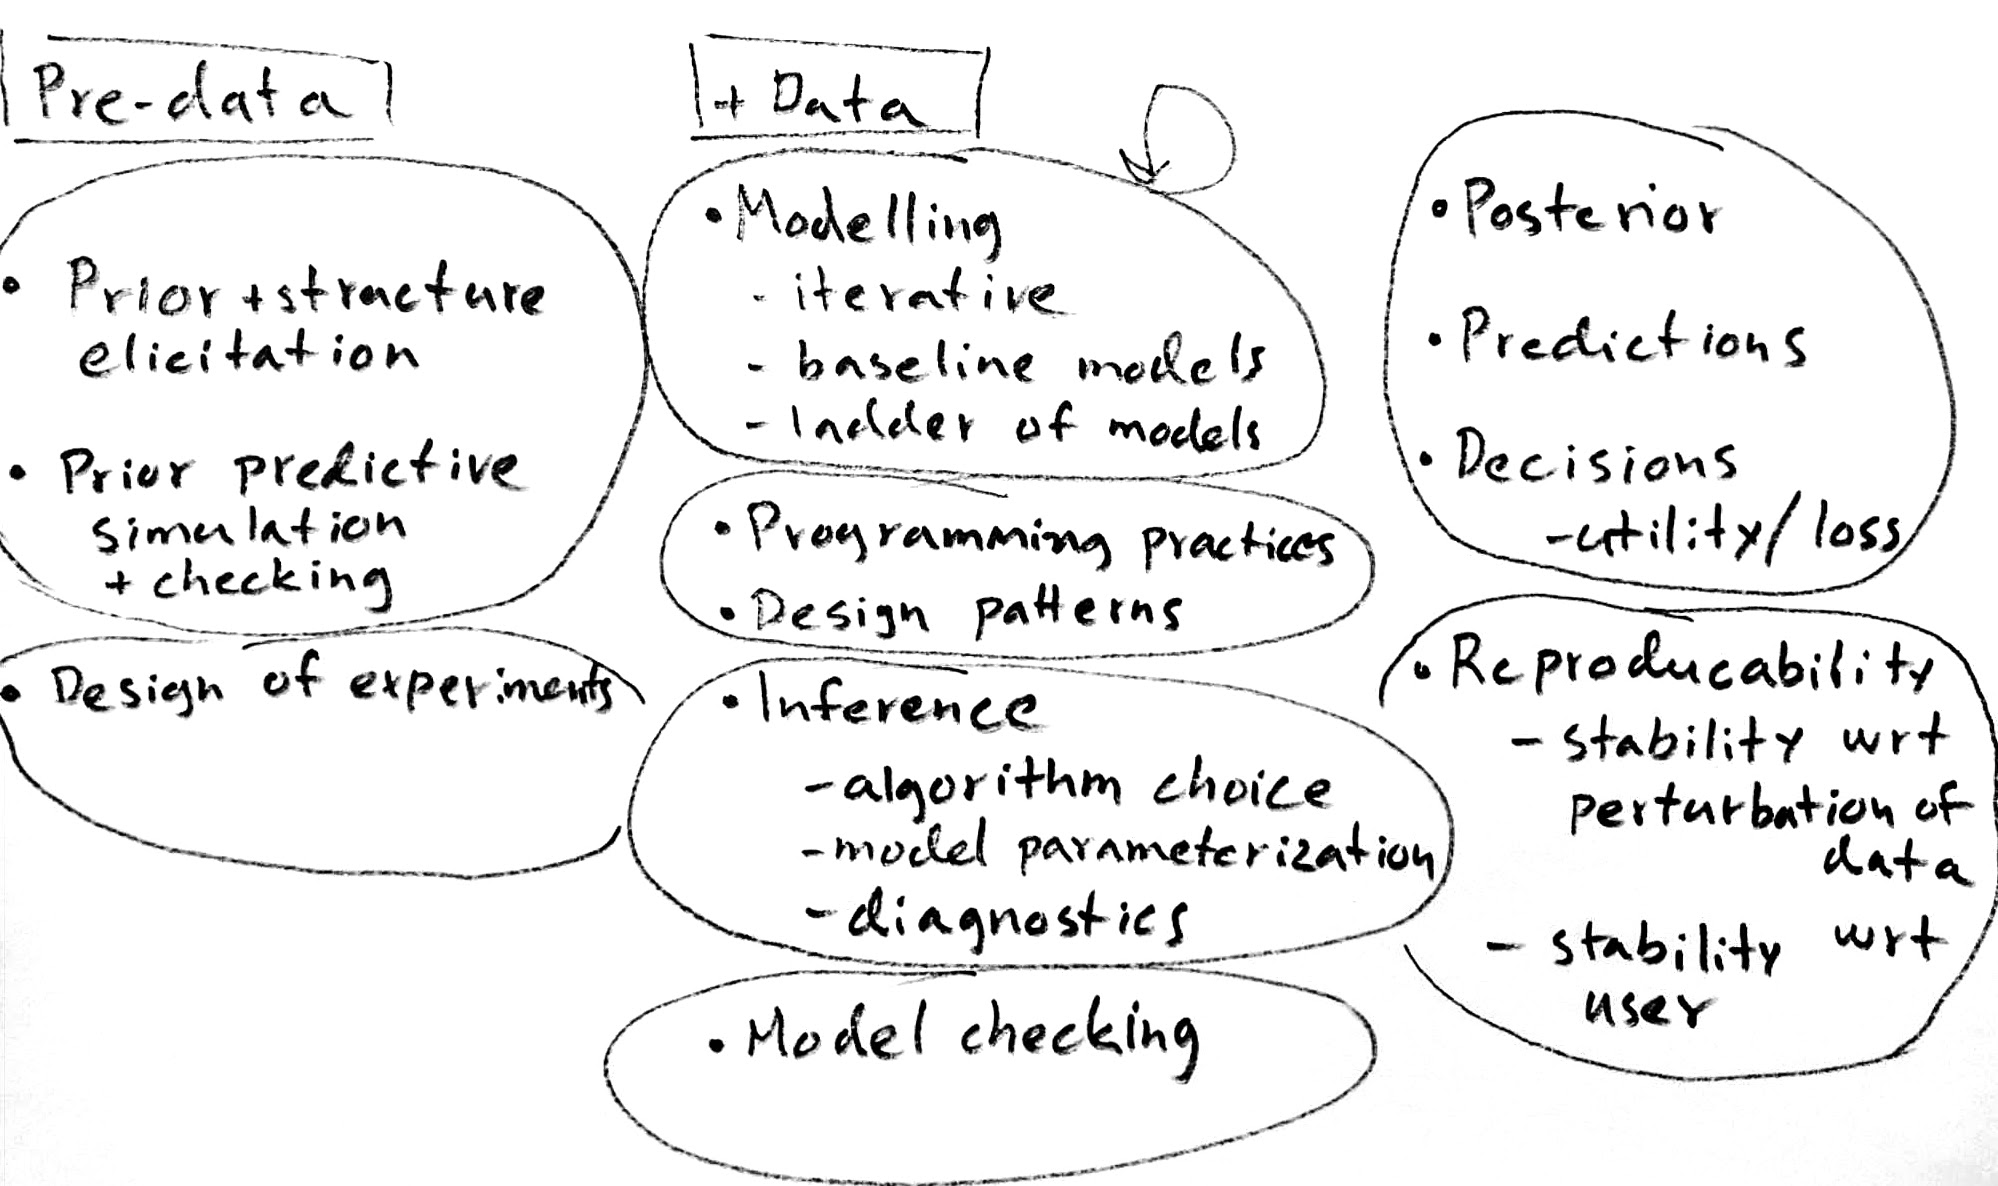 Pre-data
• Prior + structure
elicitation
• Prior predictive
simulation
+ checking
• Design of experiments
+ Data
• Modelling
- iterative
- baseline models
- ladder of models
• Programming practices
• Design patterns
• Inference
- algorithm choice
- model parameterization
- diagnostics
• Model checking
• Posterior
• Predictions
• Decisions
- utility/loss
• Reproducability
- stability wrt
perturbation of
data
- stability wrt
user